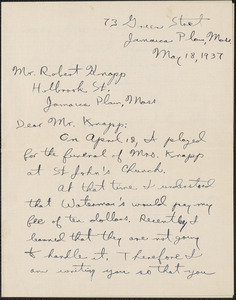 73 Green Street
Jamaica Plain, Mass
May 18, 1937
Mr. Robert Knapp
Holbrook St.
Jamaica Plain, Mass
Dear Mr. Knapp:
On April 19, I played
for the funeral of Mrs. Knapp
at St John's Church.
At that time I understood
that Waterman's would pay my
fee of ten dollars. Recently I
learned that they are not going
to handle it. Therefore I
am writing you so that you